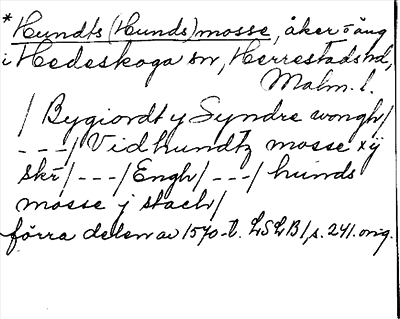 *Hundts (Hunds)mosse, åker o äng
i Hedeskoga sn, Herrestads hd,
Malm. l.
/ Bygiordt y Syndre wongh/
---/ Vid hundtz mosse xij
skr̄/---/Engh/---/hunds
mosse j stach/
förra delen av 1570-t. LSLB1, s. 241. orig.